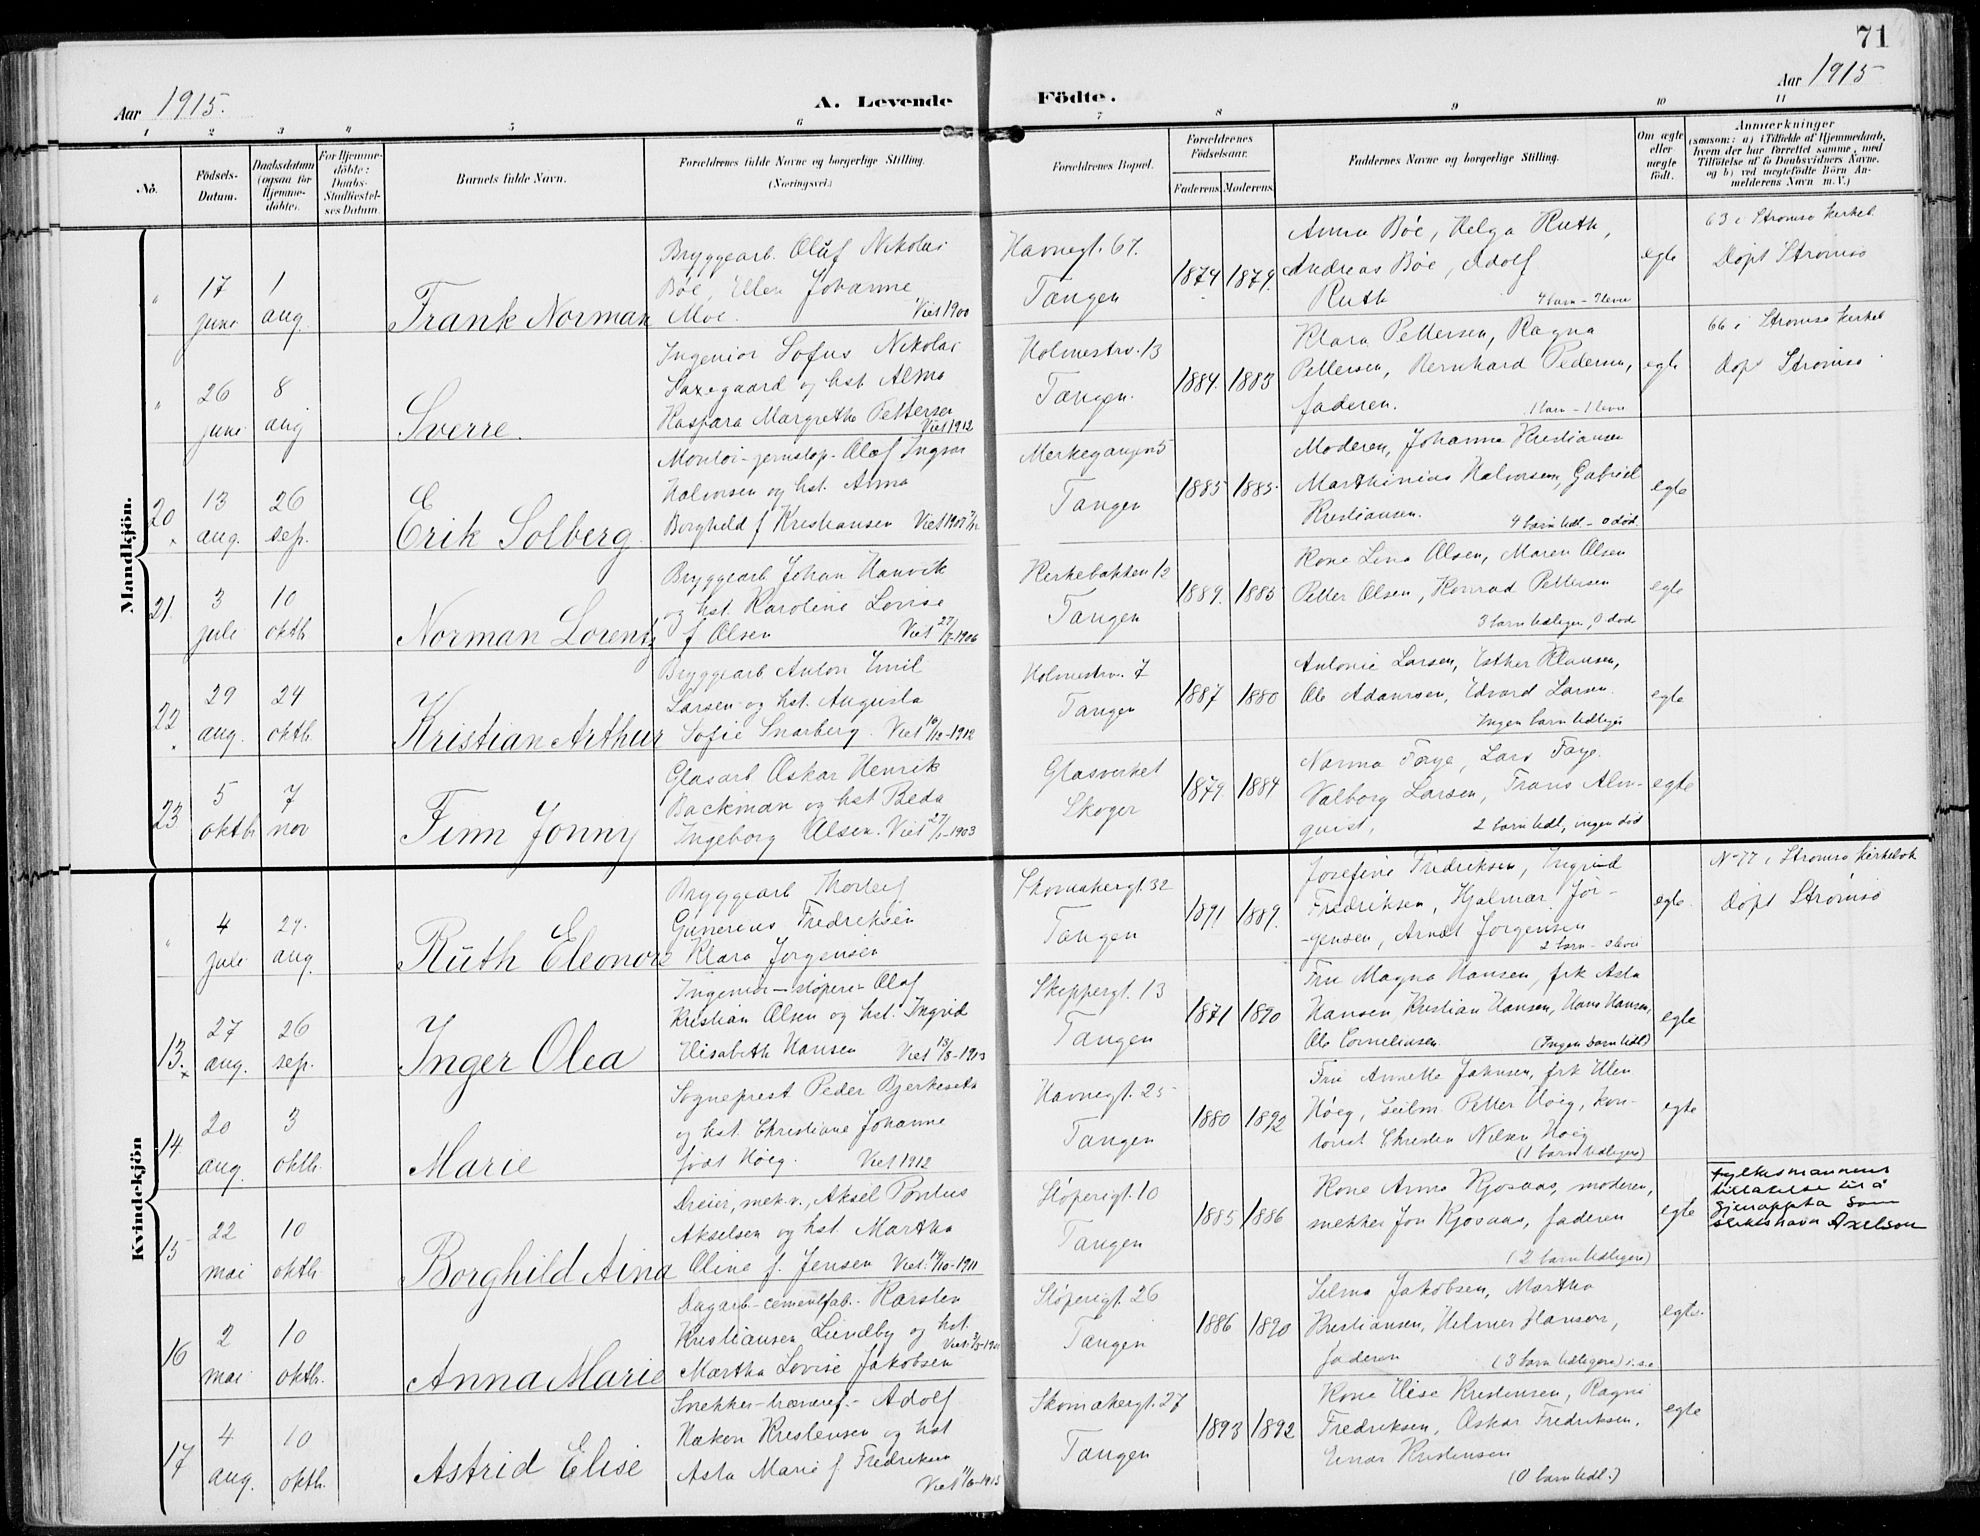 71
Aar 1915.
A. Levende Födte.
Aar 1915
1 2 3 4 5 6 7 8 9 10 11
No.
Födsels-Datum.
Daabsdatum (ogsaa for Hjemmedöbte).
For Hjemmedöbte: Daabs-Stadfæstelses Datum
Barnets fulde Navn.
Forældrenes fulde Navne og borgerlige Stilling.
(Næringsvei.)
Forældrenes Bopæl.
Forældrenes Födselsaar.
Faderens. Moderens.
Faddernes Navne og borgerlige Stilling.
Om ægte eller uægte födt.
Anmærkninger
(saasom: a) i Tilfælde af Hjemmedaab,
hvem der har forrettet samme, med
Tilföielse af to Daabsvidners Navne.
og b) ved uægtefödte Börn Anmelderens Navn m. V.)
Mandkjön.
" 17 june 1 aug. Frank Norman
Bryggearb. Oluf Nikolai
Bøe, Ellen Johanne
Moe. Viet 1900
Havnegt. 67.
Tangen
1874 1879.
Anna Bøe, Helga Ruth,
Andreas Bøe, Adolf
Ruth 4 barn -
egte
63 i Strømsø kirkeb.
Døpt Strømsø
" 26 june 8 aug Sverre.
Ingeniør Sofus Nikolai
Saxegaard og hst Alma
Kaspara Margrethe Pettersen
Viet 1912
Holmestrv. 13
Tangen.
1884. 1883
Klara Pettersen, Ragna
Pettersen, Bernhard Pedersen,
faderen. 1 barn - 1 levn
egte
66 i Strømsø kirkeb
Døpt Strømsø
20 13 aug. 26 sep. Erik Solberg
Olaf Ingvar
Halvorsen og hst. Anna
Borghild f Kristiansen Viet 1907
Merkegangen 5
Tangen
1885 1885.
Moderen, Johanna Kristiansen
Marthinius Halvorsen, Gabriel
Kristiansen. 4 barn tidl - 0 død
egte
21. 3 juli 10 oktb Norman Lorentz
Bryggearb Johan Hanvik
og hst. Karoline Lovise
f Olsen Viet 27/7-1906
Kirkebakken 12
Tangen
1889. 1885
Kone Lina Olsen, Maren Olsen
Petter Olsen, Konrad Pettersen
3 barn tidligere, 0 død
egte
22. 29 aug. 24 oktb. Kristian Arthur
Bryggearb Anton Emil
Larsen og hst. Augusta
Sofie Snarberg. Viet 16/12-1912
Holmestrv. 7
Tangen
1887 1880
Antonie Larsen, Esther Klausen,
Ole Adamsen, Edvard Larsen.
Ingen barn tidligere
egte
23 5 oktb 7 nov Finn Jonny
Glasarb Oskar Henrik
Backman og hst Beda
Ingeborg Olsen. Viet 27/1-1903
Glasverket
Skoger
1879. 1884
Nanna Faye, Lars Faye.
Valborg Larsen, Frans Alm-
quist, 2 barn tidl, ingen død
egte
Kvindekjön
" 4 juli 29. aug Ruth Eleonore
Bryggearb Thorleif
Gunerius Fredriksen
Klara Jørgensen
Skomakergt. 32
Tangen
1891 1889.
Josefine Fredriksen, Ingrid
Fredriksen, Hjalmar Jør-
gensen, Arndt Jørgensen
2 barn -
egte.
No 77 i Strømsø kirkebok
Døpt Strømsø
13. 27 aug. 26 sep. Inger Olea
Ingeniør - støperi - Olaf
Kristian Olsen og hst. Ingrid
Elisabeth Hansen Viet
Skippergt. 13
Tangen
1871 1890
Fru Magna Hansen, frk Asta
Hansen Kristian Hansen, Hans Hansen,
Ole Corneliusen. (Ingen barn tidl)
egte
14. 20 aug. 3 oktb. Marie
Sogneprest Peder Bjerkeseth
og hst. Christiane Johanne
født Høeg. Viet 1912
Havnegt. 25
Tangen
1880 1892
Fru Annette Jahnsen, frk Ellen
Høeg, Petter Høeg, kon-
torist Christen Nilsen Høeg
(1 barn tidligere)
egte
15 22 mai 10 oktb Borghild Aina
Dreier, mek. v., Aksel Pontus
Akselsen og hst Martha
Oline f. Jensen Viet. 14/10-1911
Støperigt. 10
Tangen
1885 1886
Kone Anna Kjosaas, moderen,
snekker Jon Kjosaas, faderen
(2 barn tidligere)
egte
Fylkesmannens
tillatelse til å
gjenoppta som
slektsnavn Axelson
16 2 mai 10 oktb. Anna Marie
Dagarb - cementfab. - Karsten
Kristiansen Lundby og hst.
Martha Lovise Jakobsen
Støperigt. 26
Tangen
1886 1890
Selma Jakobsen, Martha
Kristiansen, Helmer Hansen,
faderen (3 barn tidligere)
egte.
17 4 aug. 10 oktb. Astrid Elise
Snekker - - Adolf
Håkon Kristensen og hst
Asta Marie f Fredriksen
Viet
Skomakergt. 27
Tangen
1893 1892
Kone Elise Kristensen, Ragni
Fredriksen, Oskar Fredriksen.
Einar Kristensen
(0 barn tidl.)
egte